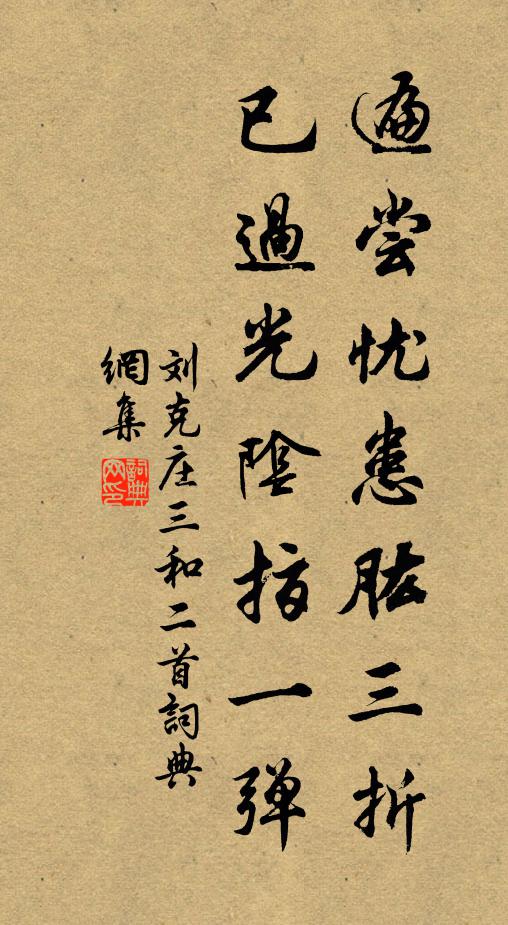 遍尝忧患肱三折
已過光陰指一弹
刘克庄三和二首詞典
網集
詞典網印